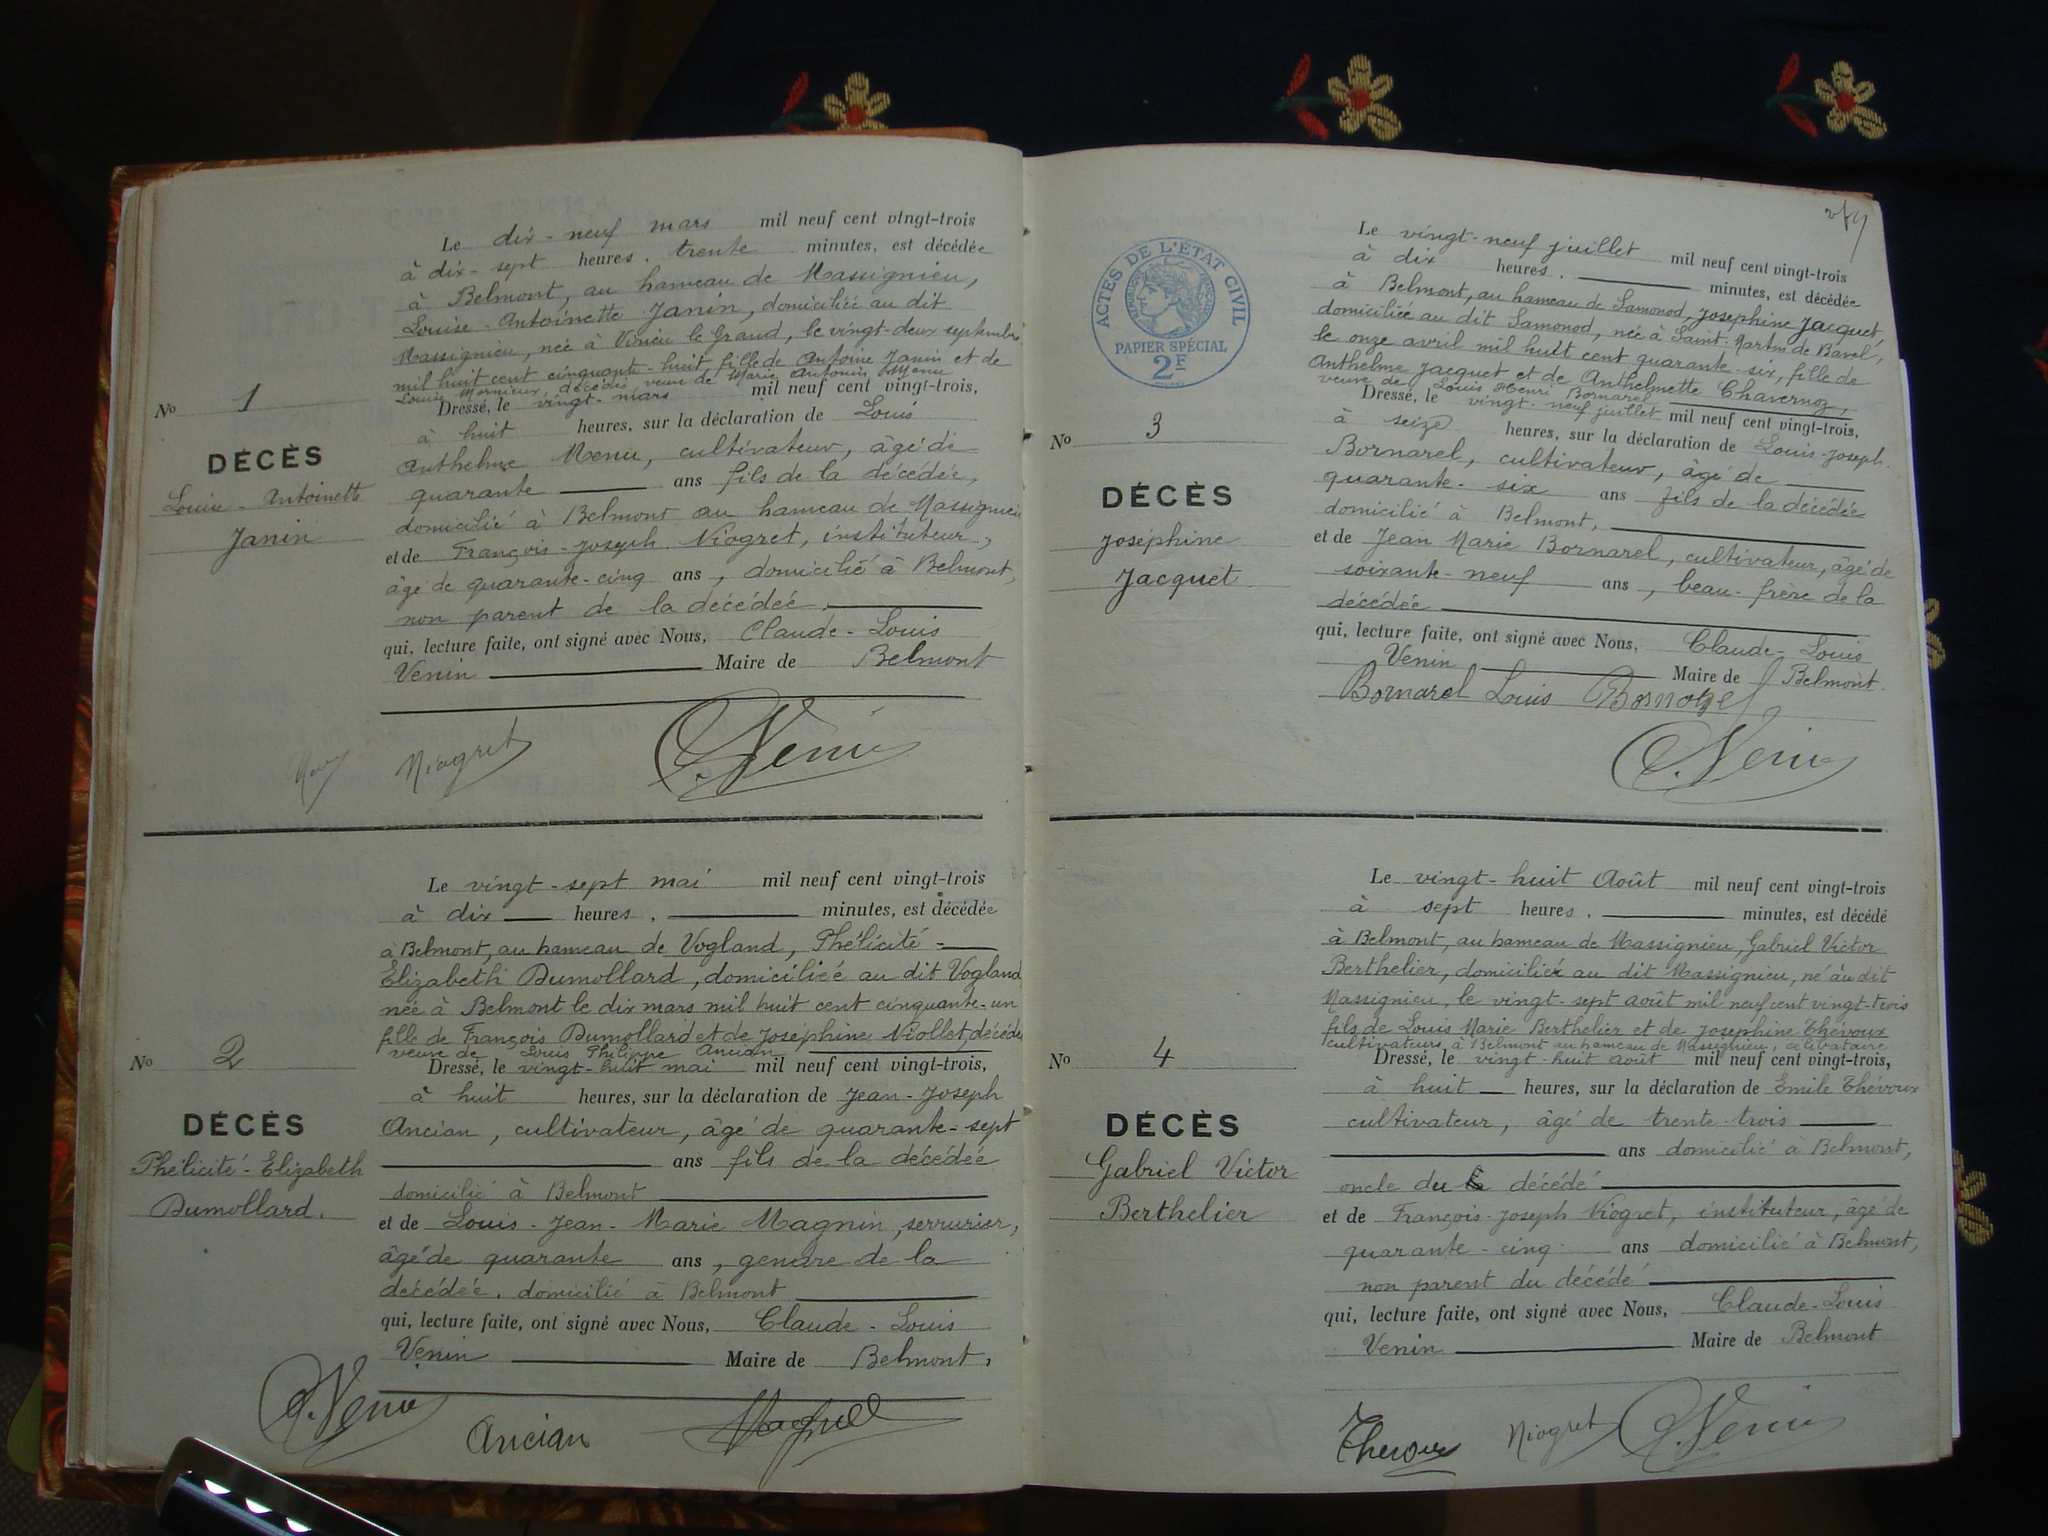 Le dix-neuf mars mil neuf cent vingt-trois
à dix-sept heures, trente minutes, est décédée
à Belmont, au hameau de Massignieu,
Louise-Antoinette Janin, domiciliée au dit
Massignieu, née à Virieu le Grand, le vingt-deux septembre
mil huit cent cinquante-huit, fille de Antoine Janin et de
Louise Mornieux, décédés, veuve de Marie Antonin Menu
Dressé, le vingt-mars mil neuf cent vingt-trois,
à huit heures, sur la déclaration de Louis
Anthelme Menu, cultivateur, âgé de
quarante ans fils de la décédée,
domicilié à Belmont au hameau de Massignieu
et de François-Joseph Niogret, instituteur,
âgé de quarante-cinq ans, domicilié à Belmont,
non parent de la décédée.
qui, lecture faite, ont signé avec Nous, Claude-Louis
Venin Maire de Belmont
No 1
DÉCÈS
Louise-Antoinette
Janin
Niogret C. Venin
Le vingt-sept mai mil neuf cent vingt-trois
à dix heures, minutes, est décédée
à Belmont, au hameau de Vogland, Phélicité-
Elizabeth Dumollard, domiciliée au dit Vogland
née à Belmont le dix mars mil huit cent cinquante-un
fille de François Dumollard et de Joséphine Niollet, décédés
veuve de Louis Philippe Ancian
Dressé, le vingt-huit mai mil neuf cent vingt-trois,
à huit heures, sur la déclaration de Jean-Joseph
Ancian, cultivateur, âgé de quarante-sept
ans fils de la décédée
domicilié à Belmont
et de Louis-Jean-Marie Magnin, serrurier,
âgé de quarante ans, gendre de la
décédée, domicilié à Belmont
qui, lecture faite, ont signé avec Nous, Claude-Louis
Venin Maire de Belmont,
No 2
DÉCÈS
Phélicité-Elizabeth
Dumollard.
C. Venin
Ancian
ACTES DE L'ÉTAT CIVIL
PAPIER SPÉCIAL
2F
Le vingt-neuf juillet mil neuf cent vingt-trois
à dix heures, minutes, est décédée
à Belmont, au hameau de Samonod, Joséphine Jacquet,
domiciliée au dit Samonod, née à Saint-Martin de Bavel,
le onze avril mil huit cent quarante-six, fille de
Anthelme Jacquet et de Anthelmette Chavernoz,
veuve de Louis Henri Bornarel
Dressé, le vingt-neuf juillet mil neuf cent vingt-trois,
à seize heures, sur la déclaration de Louis-Joseph-
Bornarel, cultivateur, âgé de
quarante-six ans fils de la décédée
domicilié à Belmont,
et de Jean Marie Bornarel, cultivateur, âgé de
soixante-neuf ans, beau-frère de la
décédée
qui, lecture faite, ont signé avec Nous, Claude-Louis
Venin Maire de Belmont.
Bornarel Louis Bornarel
C. Venin
No 3
DÉCÈS
Joséphine
Jacquet
Le vingt-huit Août mil neuf cent vingt-trois
à sept heures, minutes, est décédé
à Belmont, au hameau de Massignieu, Gabriel Victor
Berthelier, domicilié au dit Massignieu, né au dit
Massignieu, le vingt-sept août mil neuf cent vingt-trois
fils de Louis Marie Berthelier et de Joséphine Thévoux
cultivateurs, à Belmont au hameau de Massignieu, célibataire
Dressé, le vingt-huit août mil neuf cent vingt-trois,
à huit heures, sur la déclaration de Emile Thévoux
cultivateur, âgé de trente-trois
ans domicilié à Belmont,
oncle du décédé
et de François-Joseph Niogret, instituteur, âgé de
quarante-cinq ans domicilié à Belmont,
non parent du décédé
qui, lecture faite, ont signé avec Nous, Claude-Louis
Venin Maire de Belmont
No 4
DÉCÈS
Gabriel Victor
Berthelier
Thevoux Niogret C. Venin